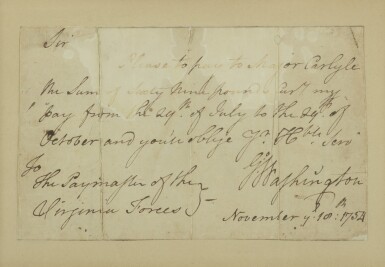 Sir
Please to pay to Major Carlyle
the Sum of Sixty Nine pounds my
pay from the 29th of July to the 29th of
October and you'll oblige Yr Hble Serv
GWashington
To
The Paymaster of the
Virginia Forces
November ye 10th 1754